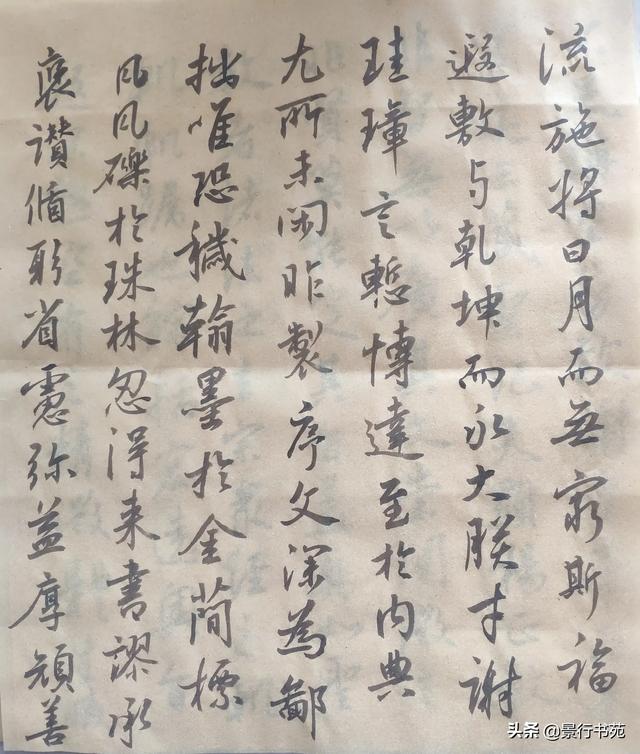 流施將日月而無窮斯福
遐敷與乾坤而永大朕才謝
珪璋言慙愽達至於內典
尤所未閑昨製序文深為鄙
拙唯恐穢翰墨於金簡標
瓦瓦礫於珠林忽得来書謬承
褒讚循躬省慮弥益厚顏善
头条 @景行书苑